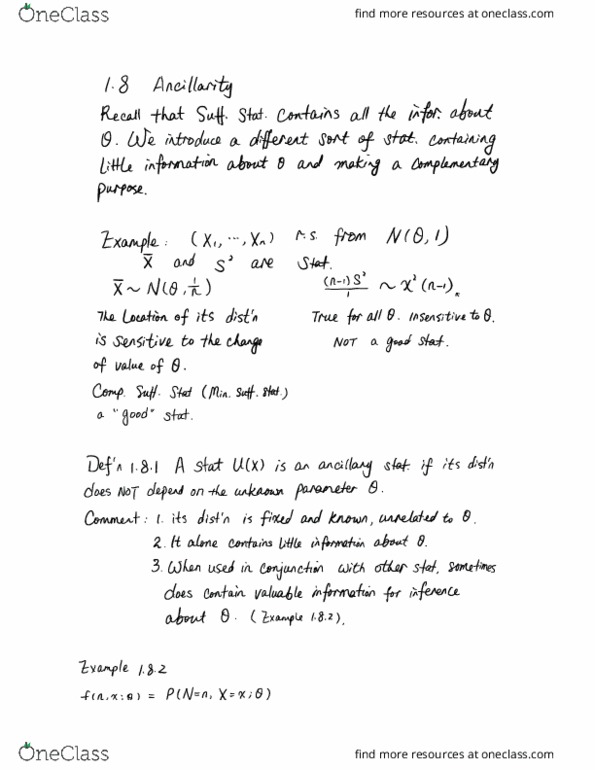 OneClass
find more resources at oneclass.com
1.8 Ancillarity
Recall that Suff. Stat. Contains all the infor. about
θ. We introduce a different sort of stat. containing
little information about θ and making a complementary
purpose.
Example: (X₁, ⋯, Xₙ) r.s. from N(θ, 1)
X̄ and S² are Stat.
X̄ ~ N(θ, 1/n) (n-1)S²/1 ~ χ²(n-1).
The Location of its dist'n True for all θ. Insensitive to θ.
is sensitive to the change NOT a good stat.
of value of θ.
Comp. Suff. Stat (Min. Suff. Stat.)
a "good" stat.
Def'n 1.8.1 A stat U(X) is an ancillary stat if its dist'n
does NOT depend on the unknown parameter θ.
Comment: 1. its dist'n is fixed and known, unrelated to θ.
2. It alone contains little information about θ.
3. When used in conjunction with other stat, sometimes
does contain valuable information for inference
about θ. (Example 1.8.2).
Example 1.8.2
f(n, x; θ) = P(N=n, X=x; θ)
OneClass
find more resources at oneclass.com